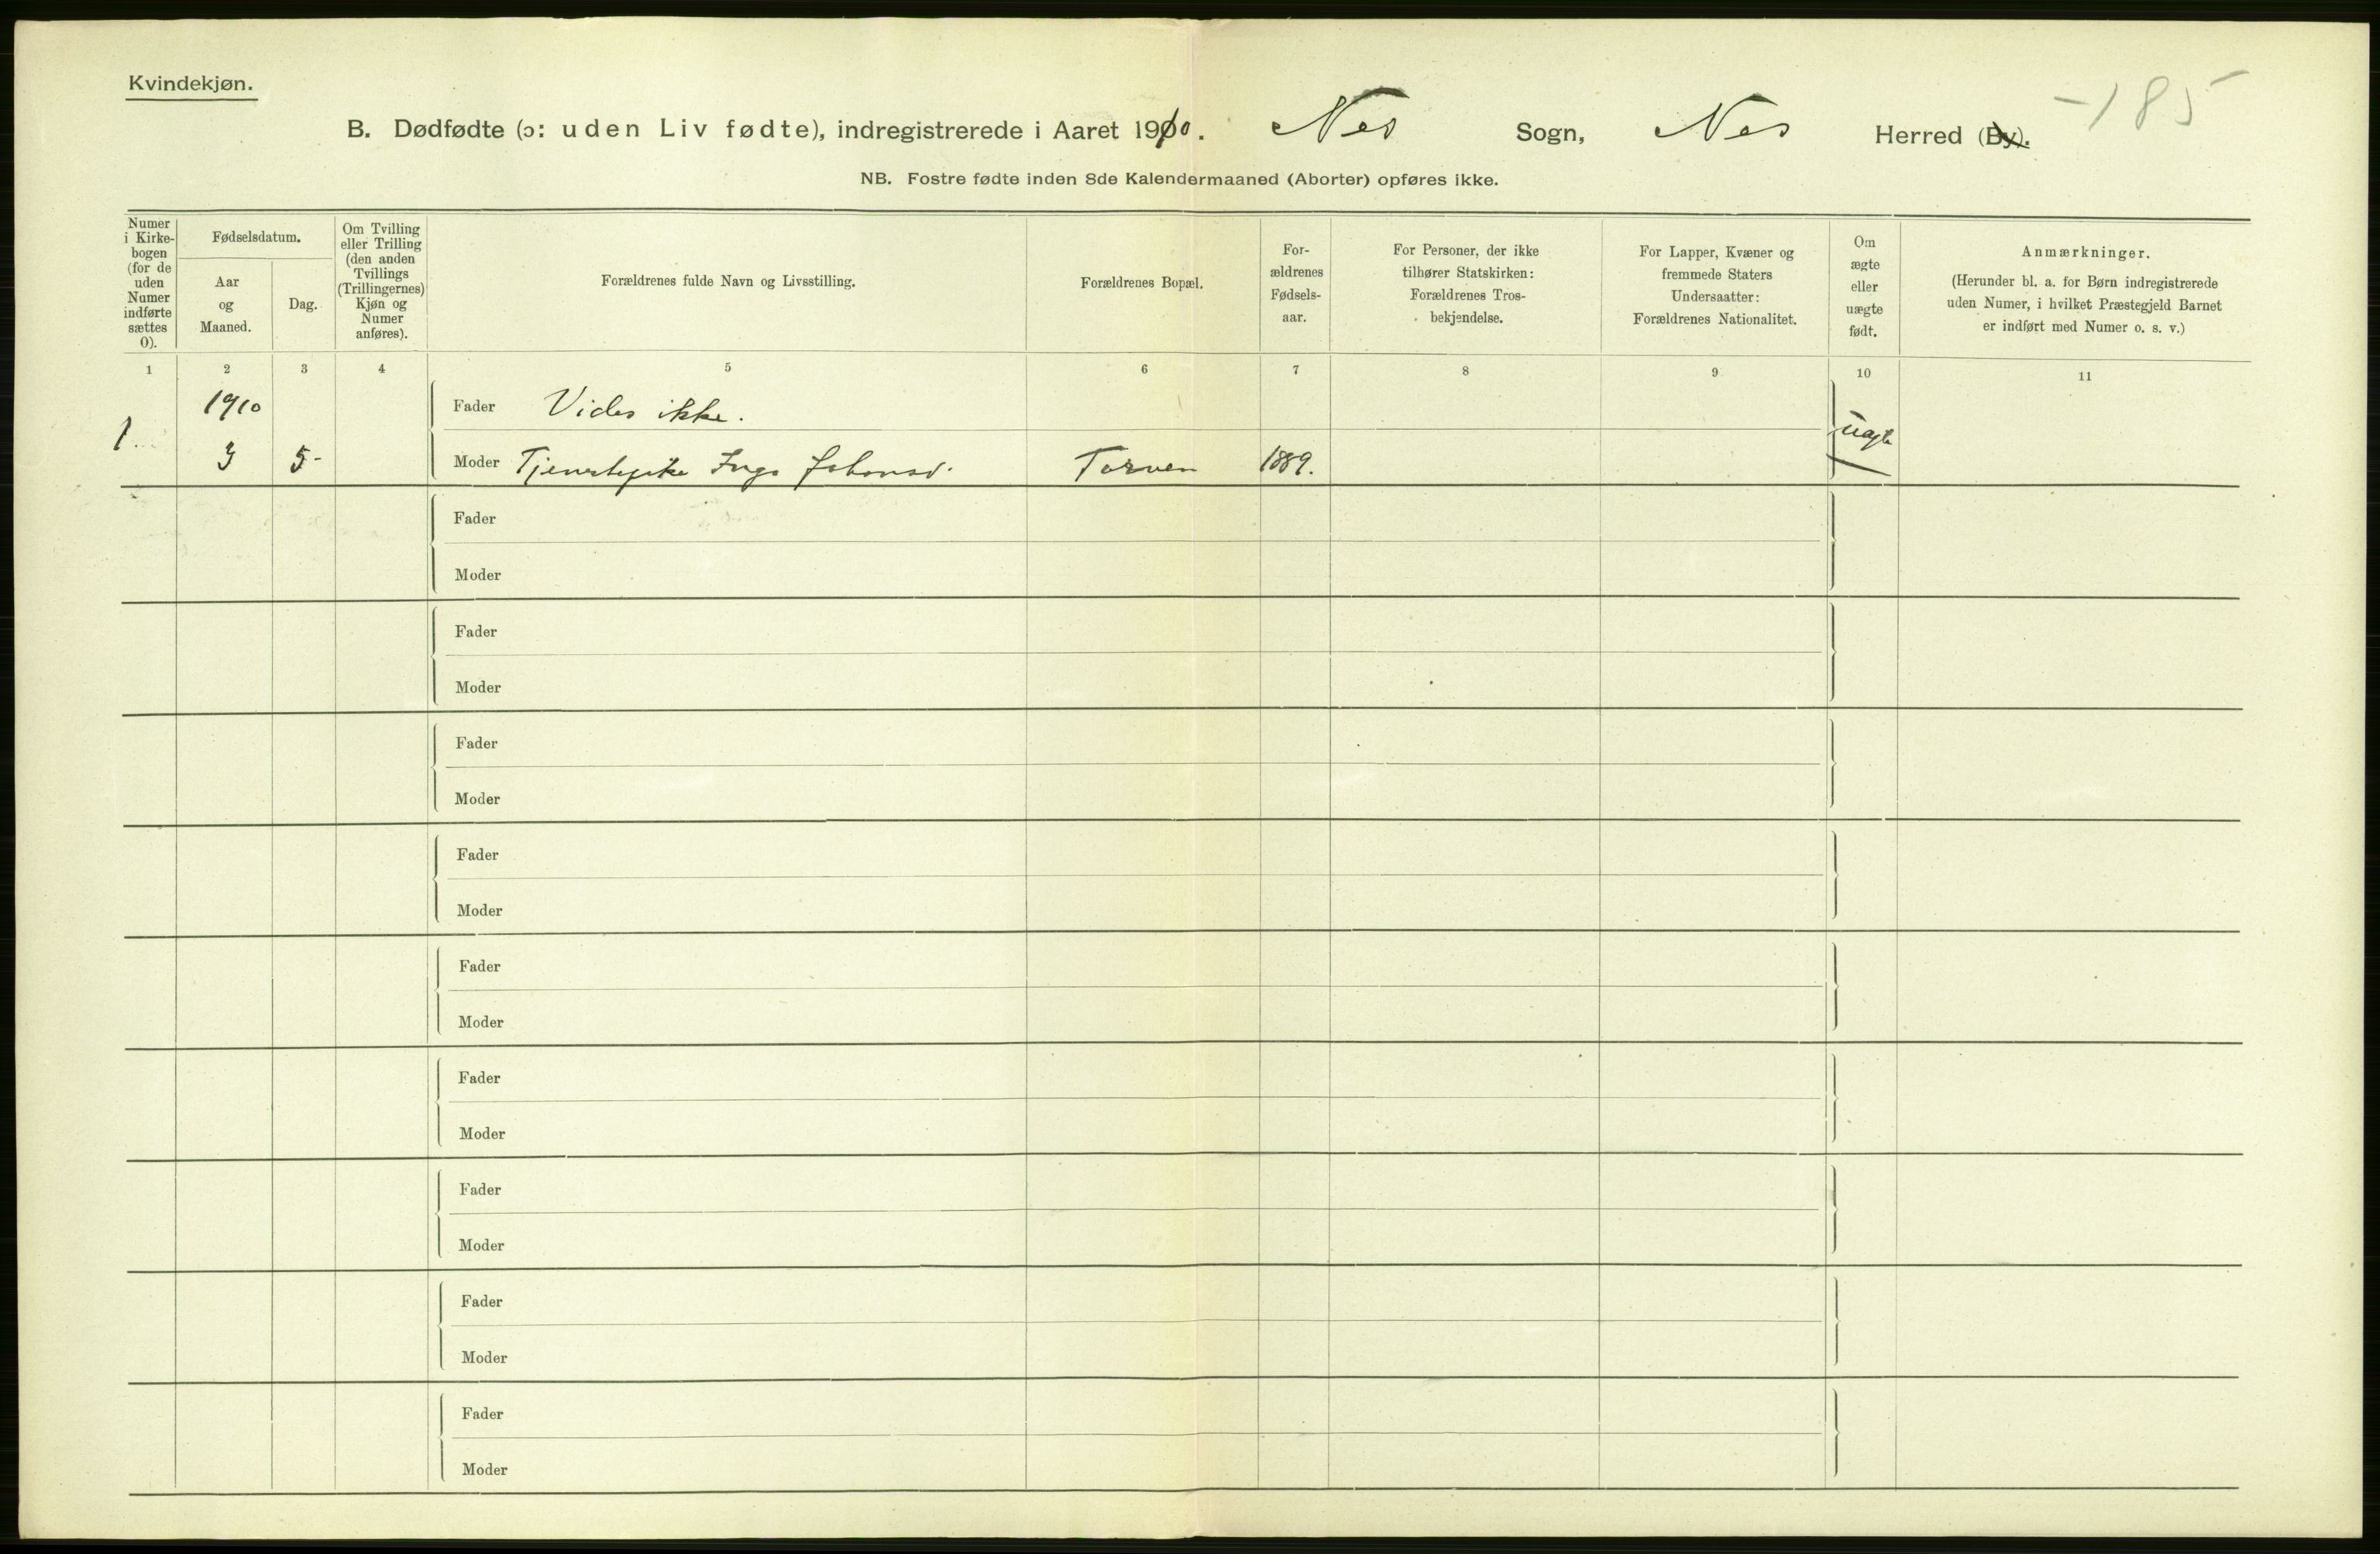 Kvindekjøn.
-185
B. Dødfødte (ɔ: uden Liv fødte), indregistrerede i Aaret 1910. Nes Sogn, Nes Herred (By).
NB. Fostre fødte inden 8de Kalendermaaned (Aborter) opføres ikke.
Numer
i Kirke-
bogen
(for de
uden
Numer
indførte
sættes
0).
Fødselsdatum.
Aar
og
Maaned.
Dag.
Om Tvilling
eller Trilling
(den anden
Tvillings
(Trillingernes)
Kjøn og
Numer
anføres).
Forældrenes fulde Navn og Livsstilling.
Forældrenes Bopæl.
For-
ældrenes
Fødsels-
aar.
For Personer, der ikke
tilhører Statskirken:
Forældrenes Tros-
bekjendelse.
For Lapper, Kvæner og
fremmede Staters
Undersaatter:
Forældrenes Nationalitet.
Om
ægte
eller
uægte
født.
Anmærkninger.
(Herunder bl. a. for Børn indregistrerede
uden Numer, i hvilket Præstegjeld Barnet
er indført med Numer o. s. v.)
1 2 3 4 5 6 7 8 9 10 11
1910 Fader Vides ikke.
1. uægte
3 5- Moder Tjenestepike Inga Johansd. Torven 1889.
Fader
Moder
Fader
Moder
Fader
Moder
Fader
Moder
Fader
Moder
Fader
Moder
Fader
Moder
Fader
Moder
Fader
Moder